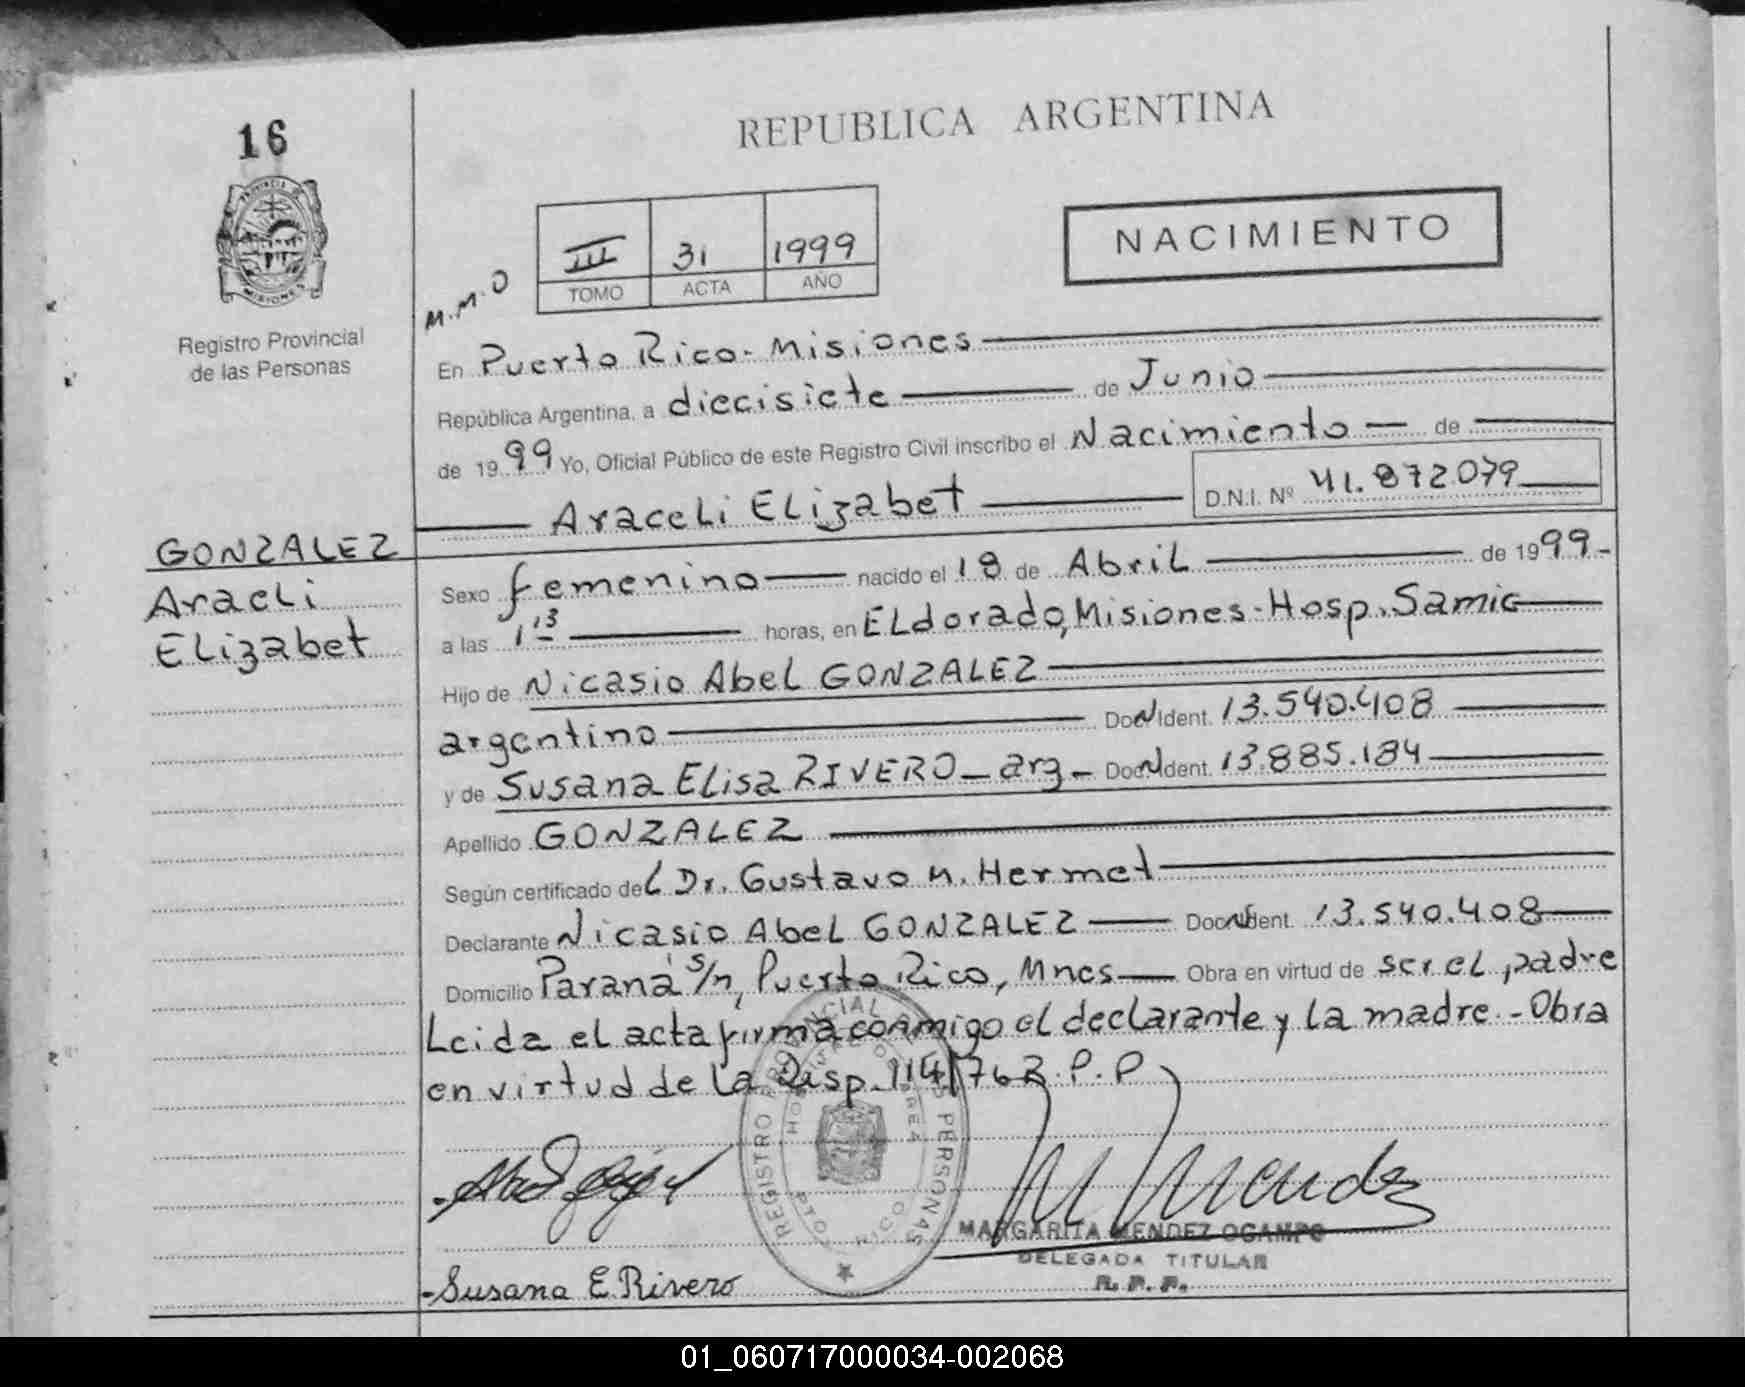 16
REPUBLICA ARGENTINA
PROVINCIA DE
MISIONES
Registro Provincial
de las Personas
NACIMIENTO
III 31 1999
TOMO ACTA AÑO
M.M.O
En Puerto Rico - Misiones
República Argentina, a diecisiete de Junio
de 1999 Yo, Oficial Público de este Registro Civil inscribo el Nacimiento de
Araceli Elizabet D.N.I. Nº 41.872.079
GONZALEZ
Aracli
Elizabet
Sexo femenino nacido el 18 de Abril de 1999-
a las 1 13 horas, en Eldorado, Misiones - Hosp. Samic
Hijo de Nicasio Abel GONZALEZ
argentino Doc N Ident. 13.540.408
y de Susana Elisa RIVERO - arg - Doc N Ident. 13.885.184
Apellido GONZALEZ
Según certificado del Dr. Gustavo H. Hermet
Declarante Nicasio Abel GONZALEZ Doc N Ident. 13.540.408
Domicilio Paraná s/n, Puerto Rico, Mnes Obra en virtud de ser el padre
Leida el acta firma conmigo el declarante y la madre.- Obra
en virtud de la Disp. 114/76 R.P.P
REGISTRO PROVINCIAL PERSONAS
M Mendez
MARGARITA MENDEZ OCAMPO
DELEGADA TITULAR
R. P. P.
-Susana E. Rivero
01_060717000034-002068